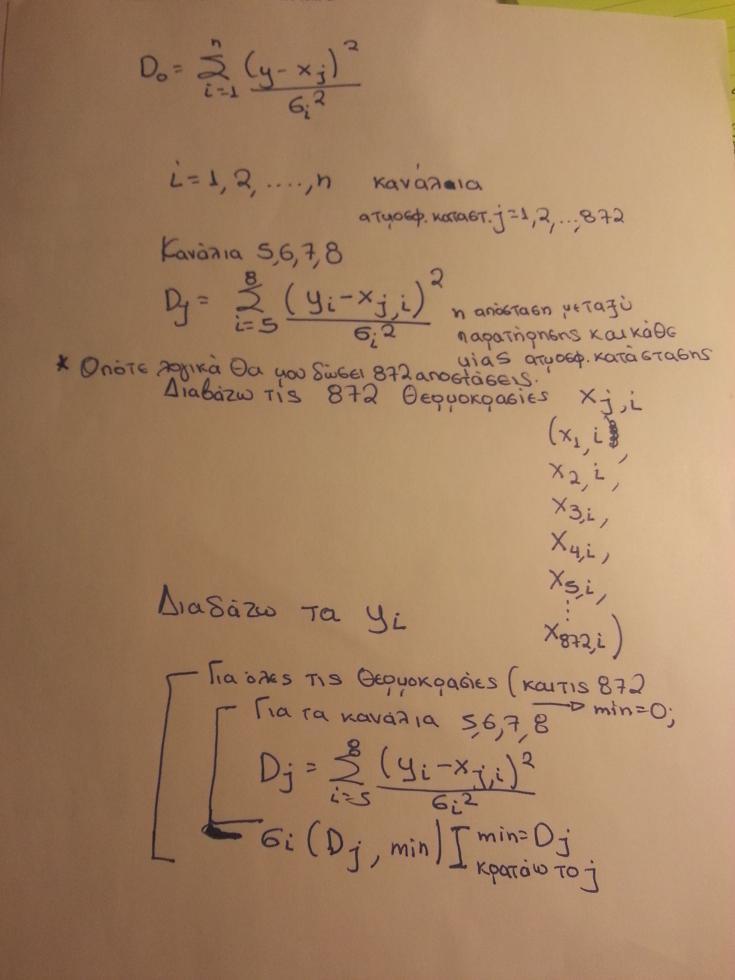 D₀ = Σⁿᵢ₌₁ (y - xⱼ)² / σᵢ²
i = 1, 2, ...., n κανάλια
ατμοσφ. καταστ. j = 1, 2, ..., 872
Κανάλια 5,6,7,8
Dⱼ = Σ⁸ᵢ₌₅ (yᵢ - xⱼ,ᵢ)² / σᵢ² η απόσταση μεταξύ
παρατήρησης και κάθε
μίας ατμοσφ. κατάστασης
* Οπότε λογικά θα μου δώσει 872 αποστάσεις.
Διαβάζω τις 872 θερμοκρασίες xⱼ,ᵢ
(x₁,ᵢ,
x₂,ᵢ,
x₃,ᵢ,
x₄,ᵢ,
x₅,ᵢ,
⋮
x₈₇₂,ᵢ)
Διαβάζω τα yᵢ
Για όλες τις θερμοκρασίες (και τις 872
→ min=0;
Για τα κανάλια 5,6,7,8
Dⱼ = Σ⁸ᵢ₌₅ (yᵢ - xⱼ,ᵢ)² / σᵢ²
σᵢ (Dⱼ, min) [ min = Dⱼ
κρατάω το j